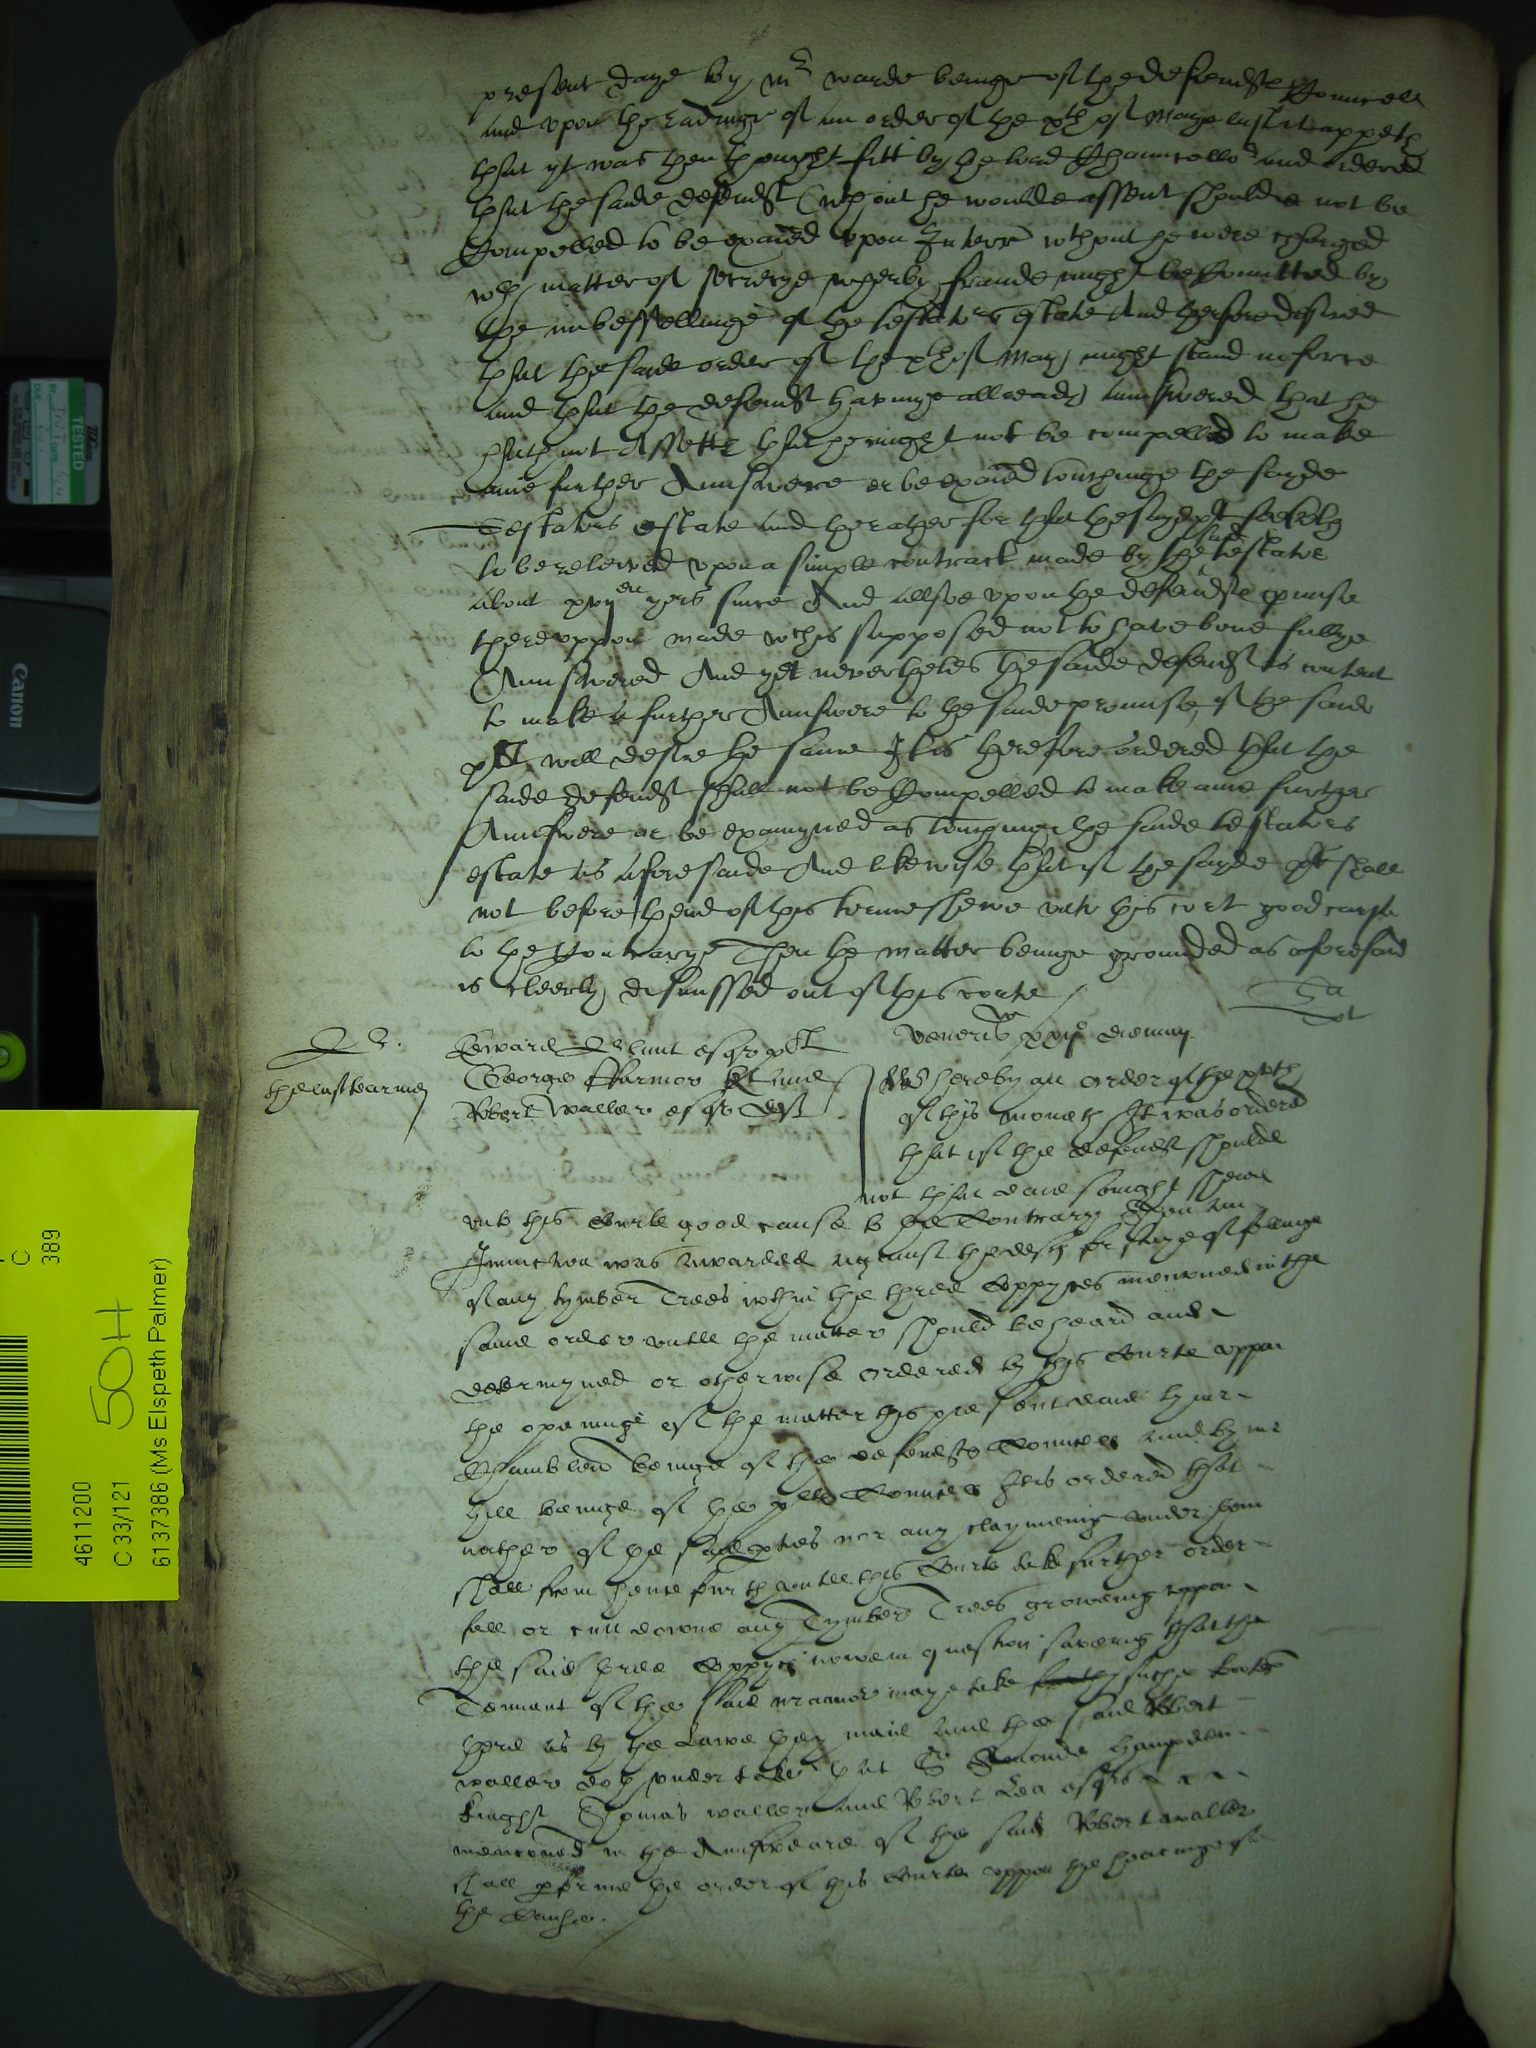 present daye by mr warde beinge of the defendtes Councell
and vpon the readinge of an order of the xth of Maye last it appeth
that yt was then thought fitt by the lord Chauncellor and ordered
that the saide defendt (wthout he woulde assent shoulde not be
Compelled to be exaied vpon Interr wthout he were charged
wth matter of secrecye wherby fraude might be Comitted by
the imbessellinge of the testators estate And therfore desired
that the saide order of the xth of May might stand in force
and that the defendt havinge allready aunswered that he
hath not Assettes that he might not be compelled to make
anie further Aunswere or be exaied touchinge the sayde
Testators estate and the rather for that the sayde plt seeketh
to be releived vpon a simple contract made by the said testator
about xviijen yers since And allsoe vpon the defendtes promise
therevppon made wch is supposed not to have bene fullye
Aunswered And yet neverthelesse the saide defendt is content
to make a further Aunswere to the saide promise, if the saide
plt will desire the same It is therefore ordered that the
saide defendt shall not be Compelled to make anie further
Aunswere or be examyned as touchinge the saide testators
estate as aforesaide And likewise that if the sayde plt shall
not before thend of this terme shewe vnto this cort good cause
to the Contrarye Then the matter beinge grounded as aforesaid
is cleerly dismissed out of this courte
Veneris xxijo die maij
the last tearme
Edward esqr plt
George Farmor kt and
Robert Waller esqr deft
Whereby an order of the xvth
of this moneth It was ordered
that if the defendt should
not this daie senight shewe
vnto this Courte good cause to the Contrary Then an
Iniunction was awarded against the deft for staye of fellinge
of any tymber Trees wthin the three Coppyces mencioned in the
same order vntill the matter should be heard and
determyned or otherwise ordered by this Courte vppon
the openinge of the matter this present daie by mr
Chamberlen beinge of the defendtes Councell and by mr
hill beinge of the pltes Councell It is ordered that
nether of the said pties nor any clayminge vnder them
shall from hence furth vntill this Courte take further order
fell or cutt downe any Tymber Trees growing vppon
the said three Coppyces nowe in question saveing that the
Tennant of the said mannor maye take such bootes
there as by the Lawe they maie And the said Robert
waller doth vndertake that Sr hampden
knight Thomas waller and Robert Lea esqrs
mencioned in the Aunsweare of the said Robert waller
shall pforme the order of this Courte vppon the hearinge of
the Cause.
TESTED
Canon
C
389
4611200
C 33/121
50H
6137386 (Ms Elspeth Palmer)